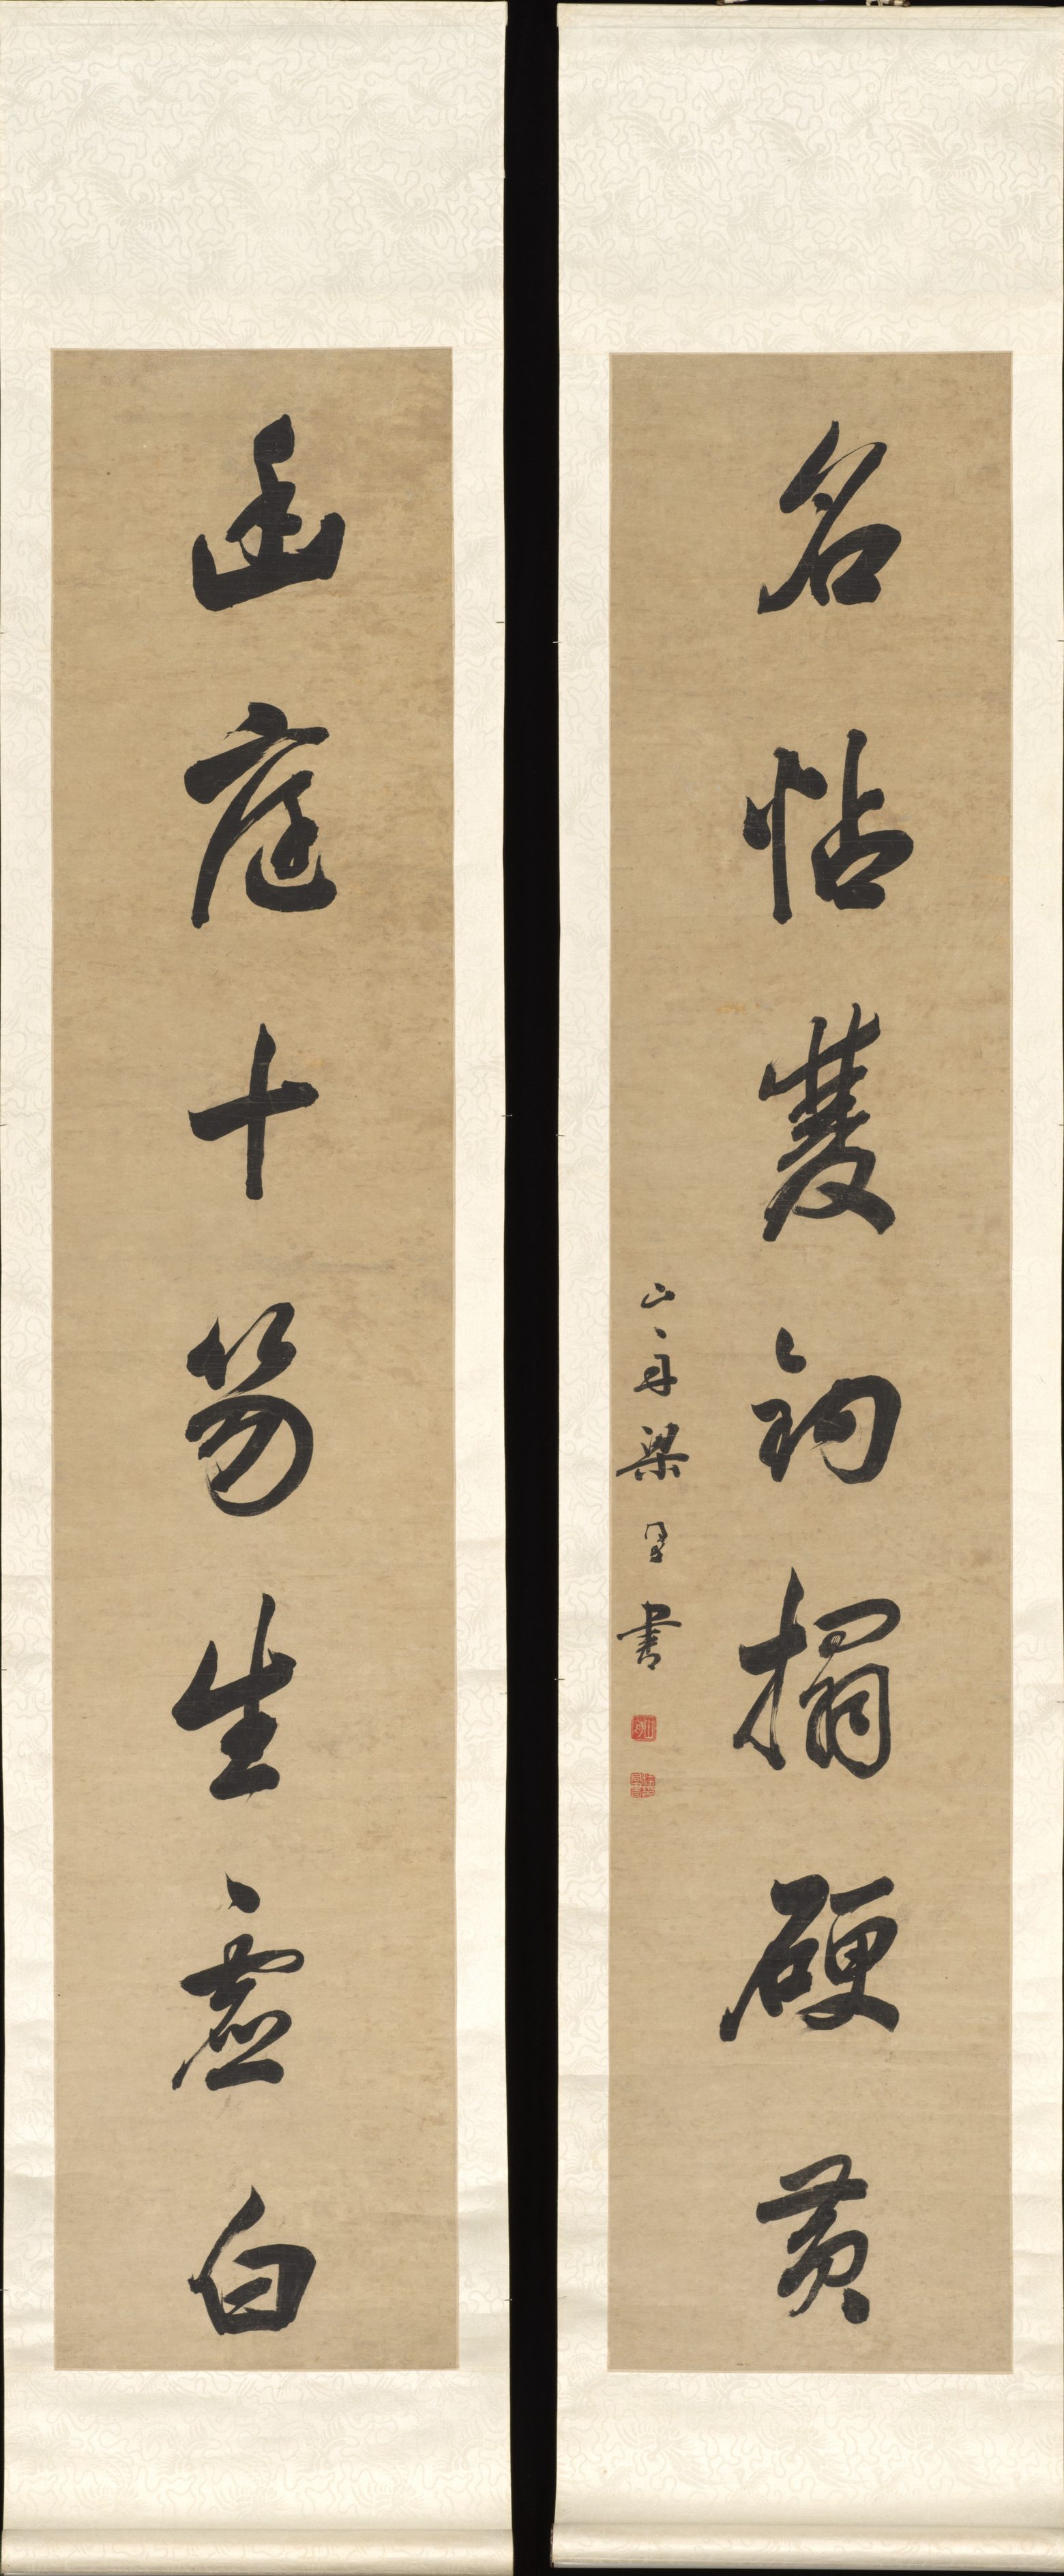 名帖雙鉤搨硬黃
山舟梁同書
幽庭十笏生虛白